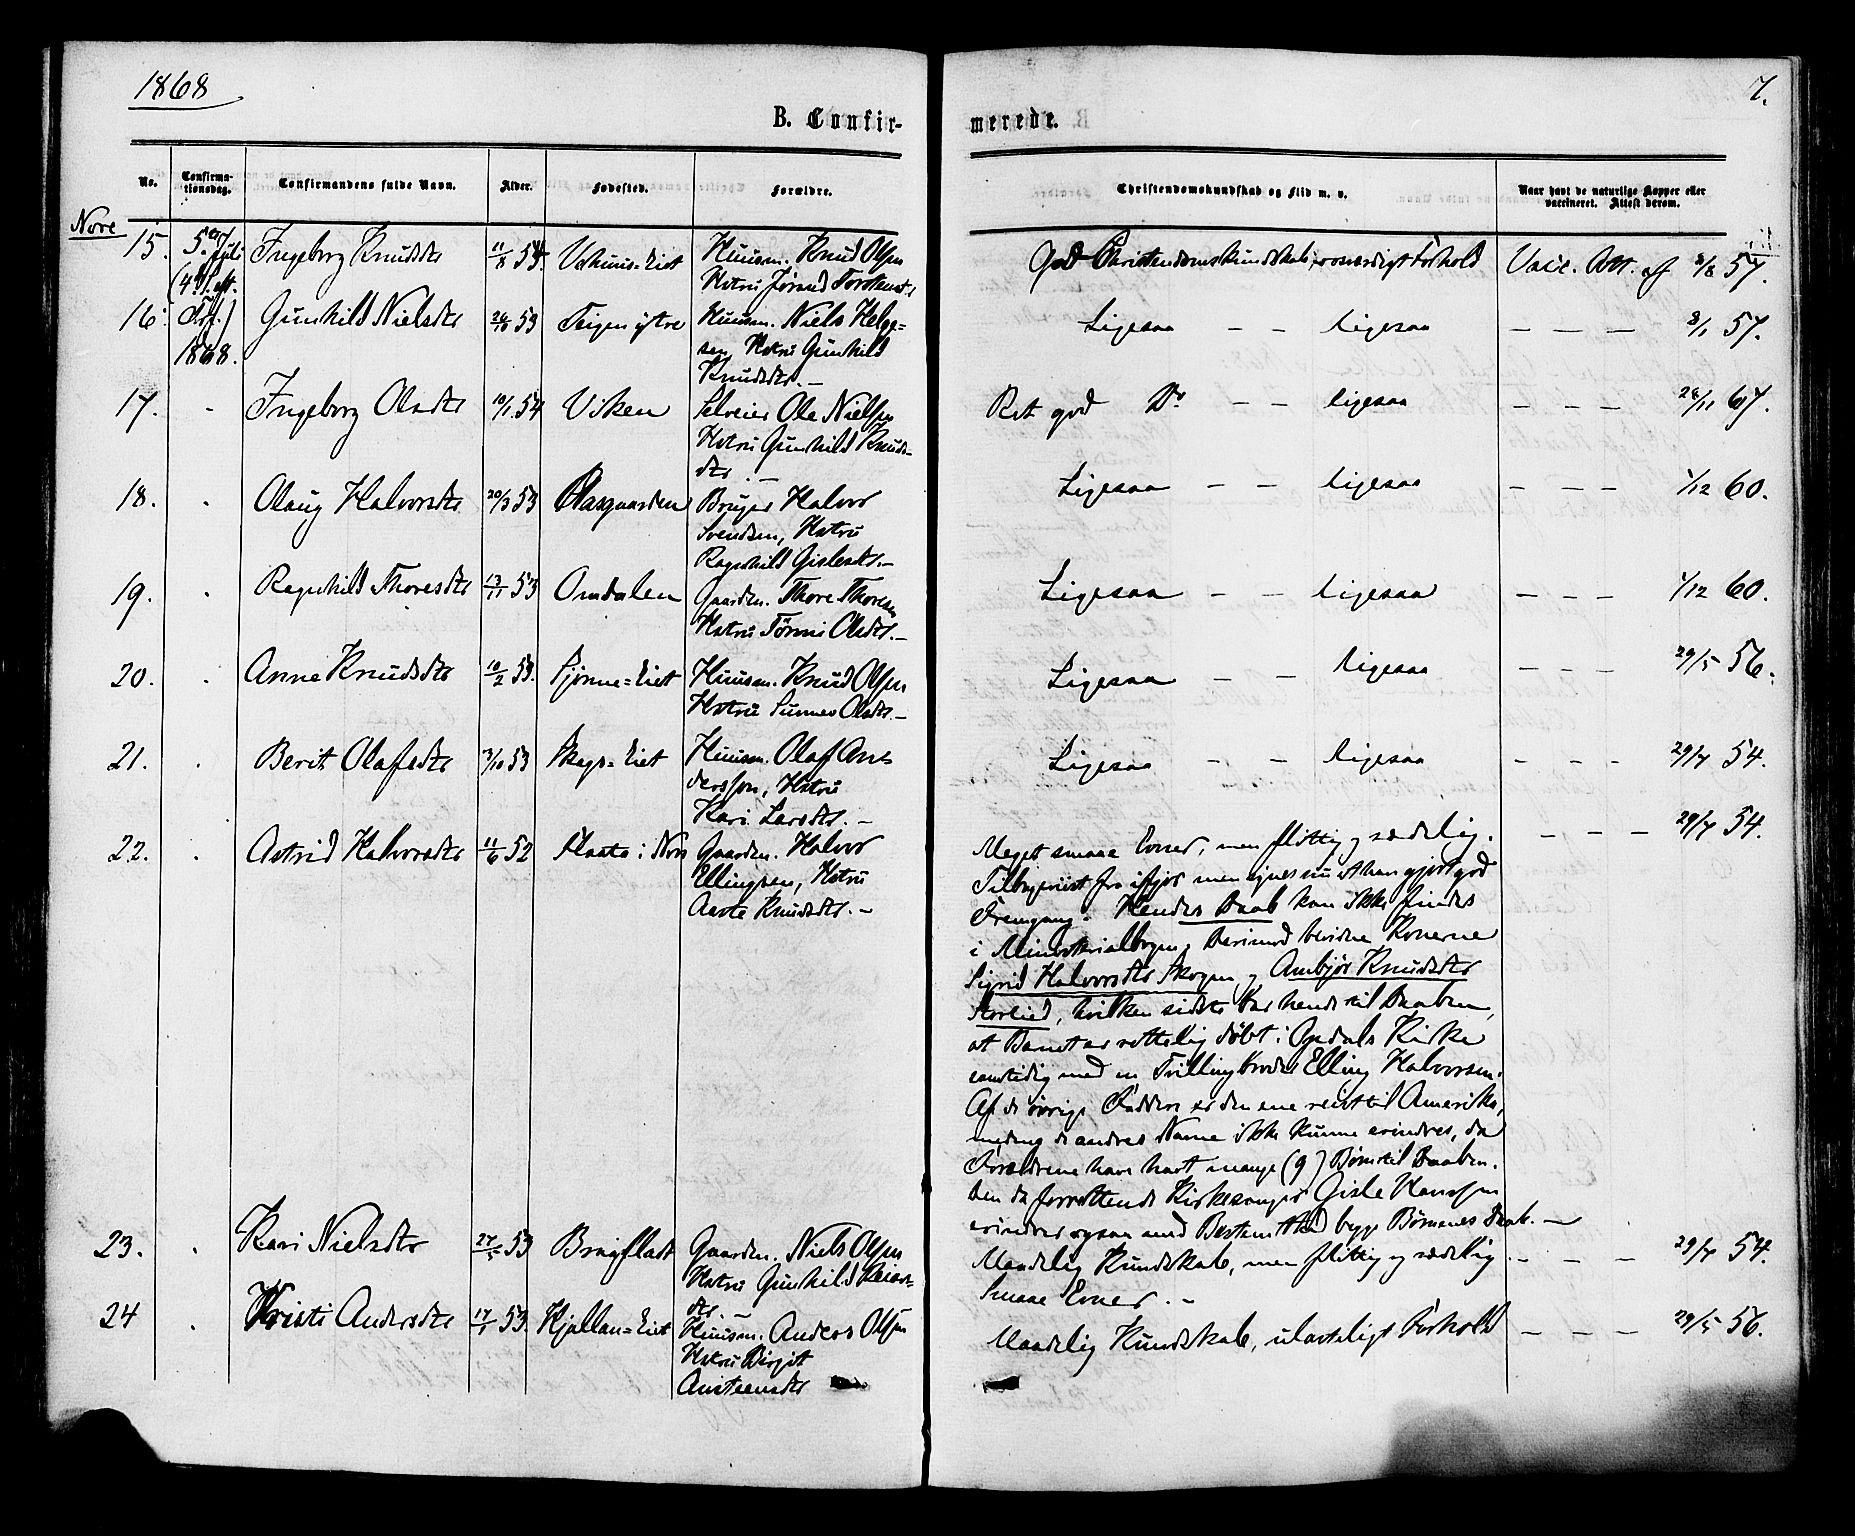 1868
7.
B. Confir-
merede.
No.
Confirma-
tionsdag.
Confirmandens fulde Navn.
Alder.
Fødested.
Forældre.
Christendomskundskab og Flid m. v.
Naar havt de naturlige Kopper eller
vaccineret. Attest derom.
Nore
15. 5. Juli Ingeborg Knudsdtr 11/8 54. Huusm. Knud Olsen
Hstru Jørand Torstensdtr
God Christendomskundskab, Forhold Vacc. Att. af 57.
16. 1868. Gunhild Nielsdtr 53 Teigen ystre Huusm. Niels Helge-
sen, Hstru Gunhild
Knudsdtr. —
Ligesaa — — ligesaa — — — 8/1 57.
17. Ingeborg Olsdtr 10/1 54 Viken Selveier Ole Nielsen
Hstru Gunhild Knuds-
dtr. —
Ret god Do — — ligesaa — — — 28/11 67.
18. Olaug Halvorsdtr 20/3 53 Aasgaarden Bruger Halvor
Svendsen, Hstru
Ragnhild Gislesdtr. —
Ligesaa — — ligesaa — — — 1/12 60.
19. Ragnhild Thoresdtr 13/11 53 Omdalen Gaardm. Thore Thoresen
Hstru Olsdtr. —
Ligesaa — — ligesaa — — — 1/12 60.
20. Anne Knudsdtr 10/2 53. Sjønne=Eiet Huusm. Knud Olsen
Hstru Olsdtr. —
Ligesaa — — ligesaa — — — 29/5 56.
21. Berit Olafsdtr 3/10 53 Skogs=Eiet Huusm. Olaf An-
dersson, Hstru
Kari Larsdtr. —
Ligesaa — — ligesaa — — — 29/7 54.
22. Astrid Halvorsdtr 11/6 52 Flaata i Nore Gaardm. Halvor
Ellingsen, Hstru
Aaste Knudsdtr. —
Meget smaae Evner, men flittig og sædelig. — — — 29/7 54.
Tilbageviist fra ifjor men synes nu at have gjort god
Fremgang. Hendes Daab kan ikke findes
i Ministerialbogen; derimod bevidne Konerne
Sigrid Halvorsdtr Skogen og Ambjør Knudsdtr
Storlied, hvilken sidste bar hende til Daaben,
at Barnet er rettelig døbt i Opdals Kirke
samtidig med en Tvillingbroder Elling Halvorsen.
Af de øvrige Faddere er den ene reist til Amerika,
medens de andres Navne ikke kunne erindres, da
Forældrene have havt mange (9) Børn til Daaben.
Den da forrettende Kirkesanger Gisle Hanssen
erindrer ogsaa med Bestemthed begge Børnenes Daab. —
23. Kari Nielsdtr 27/5 53 Bragfladt Gaardm. Niels Olsen
Hstru Gunhild
dtr. —
Maadelig Kundskab, men flittig og sædelig. — — — 29/7 54.
Smaae Evner. —
24 Kristi Andersdtr 17/1 53. Kjallan=Eiet Huusm. Anders Olsen
Hstru Birgit
Austeensdtr
Maadelig Kundskab, ulasteligt Forhold — — — 29/5 56.